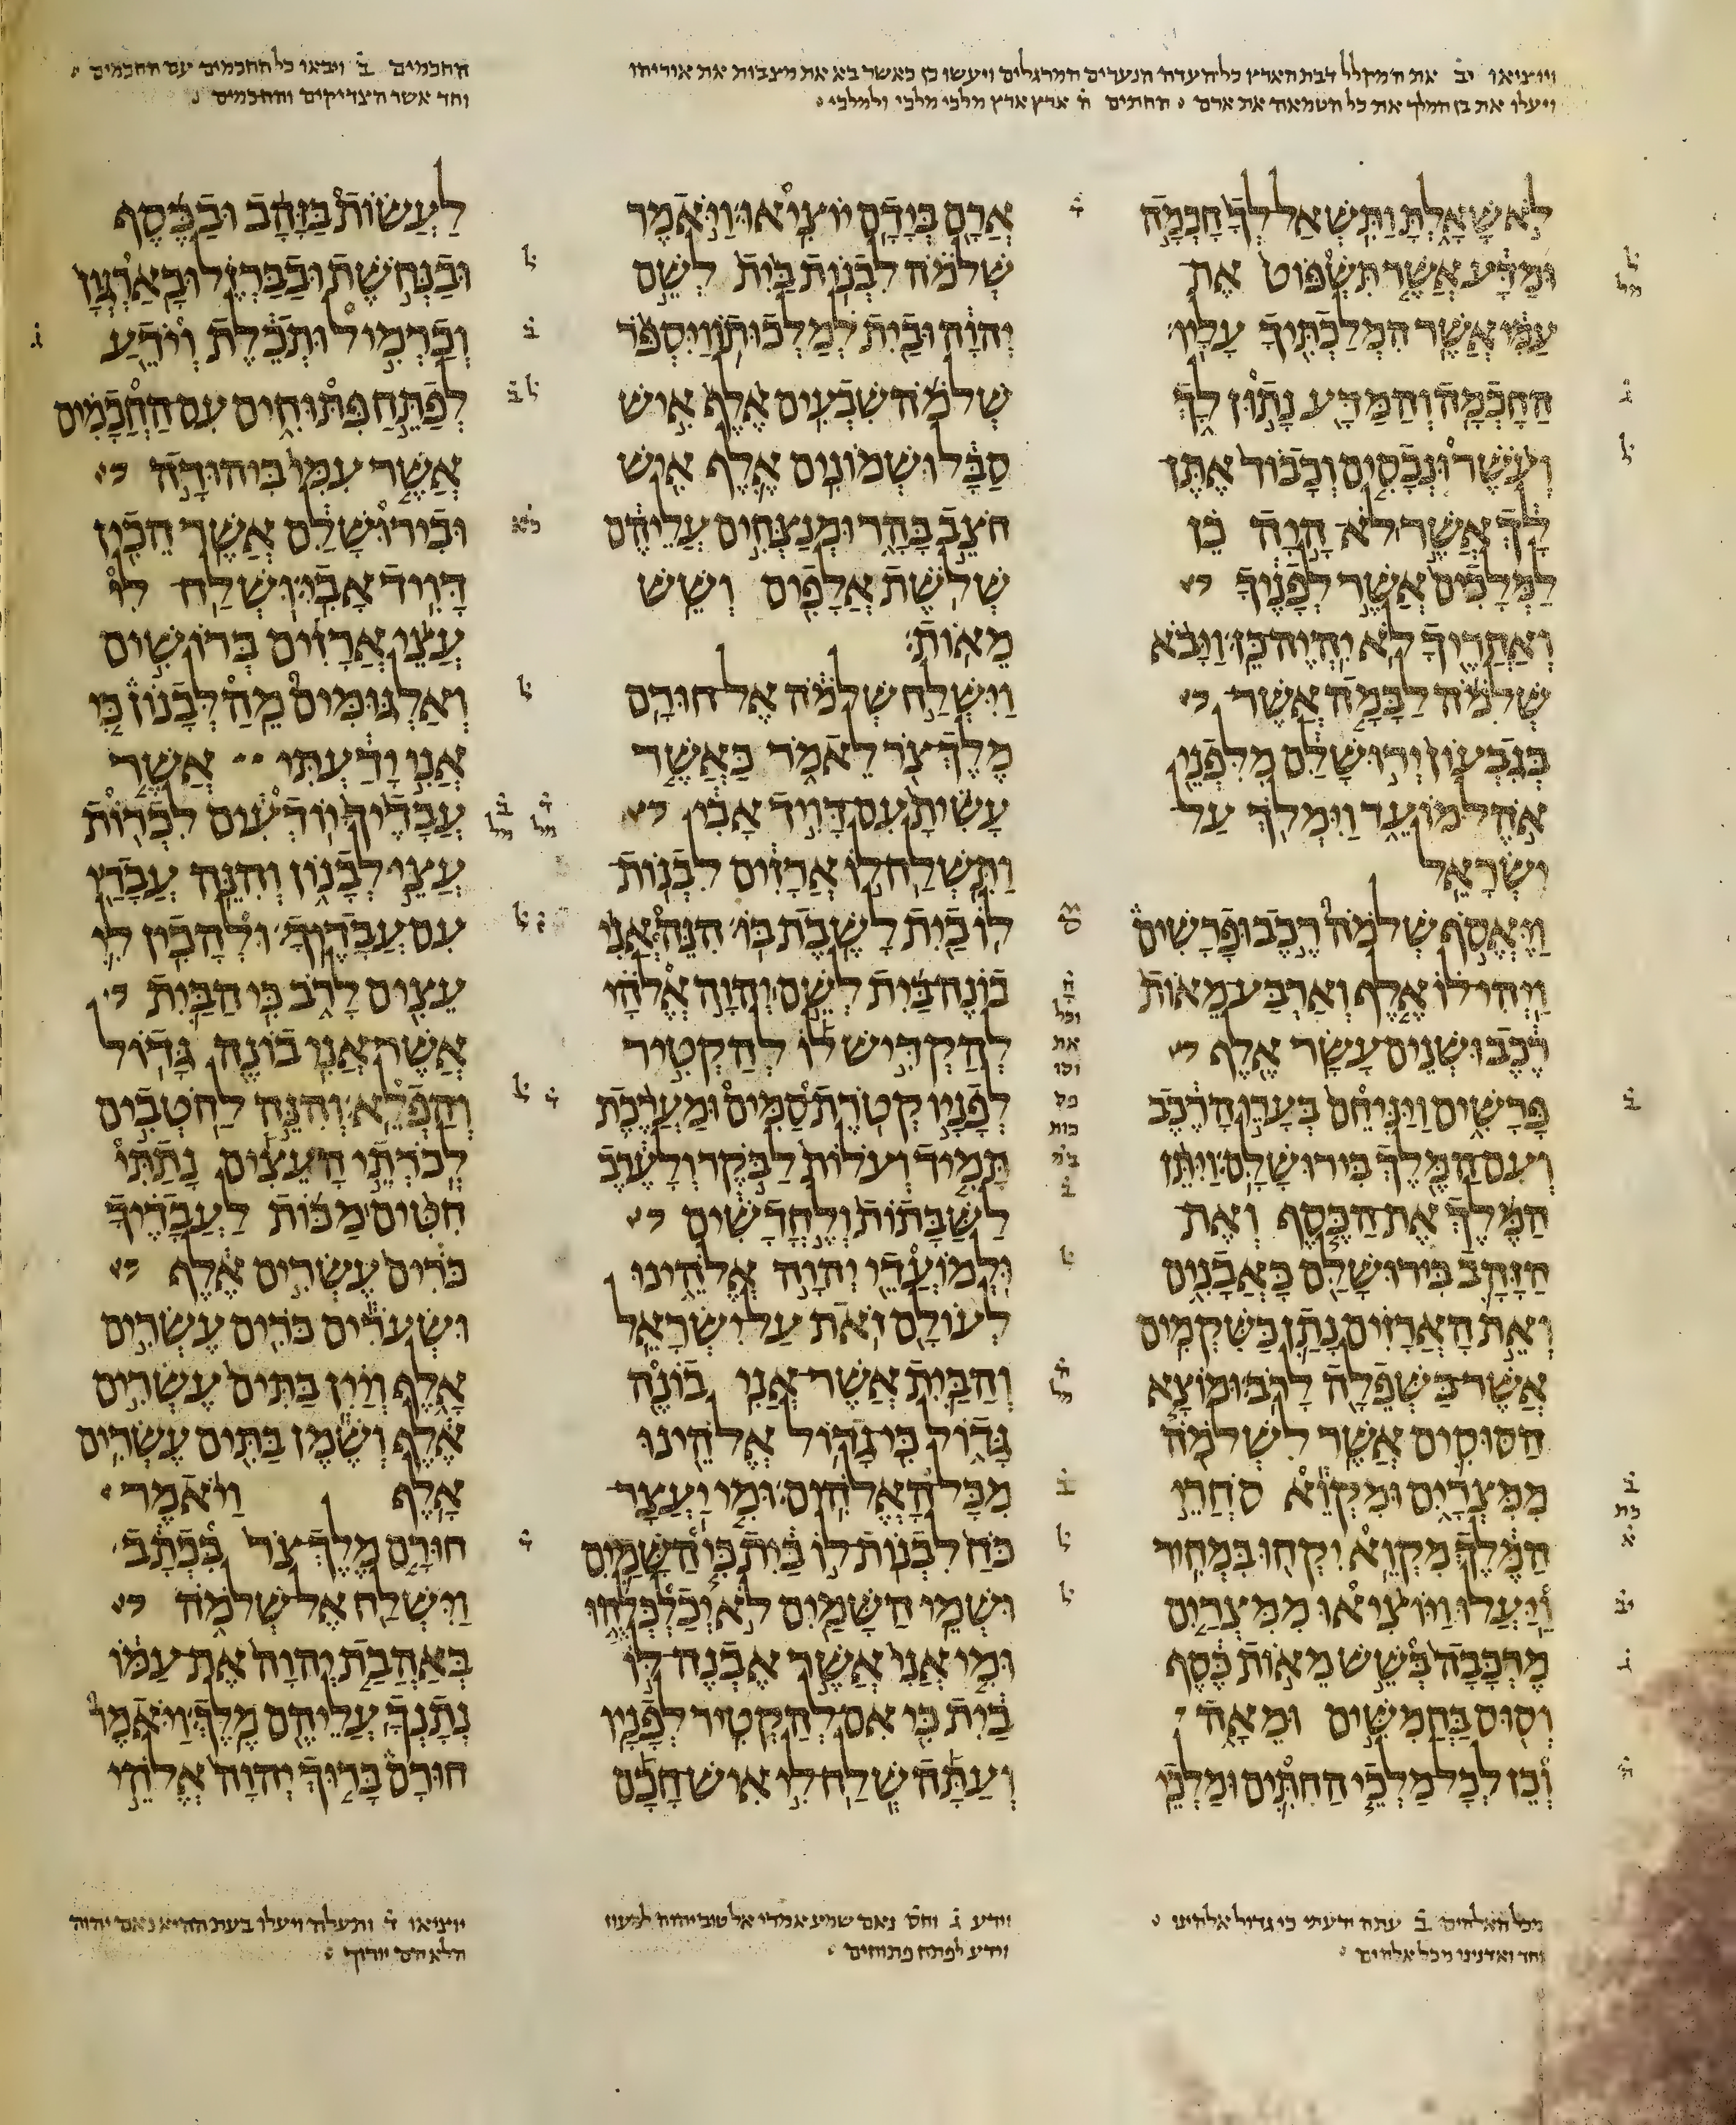 ויוציאו יב את המקלל דבת הארץ כל העדה הנערים המרגלים ויעשו כן כאשר בא את מצבות את אוריהו
ויעלו את בן המלך את כל הטמאה את ארם החתים ה ארץ ארץ מלכי מלכי ולמלכי
החכמים ב ויבאו כל החכמים עם החכמים
וחד אשר הצדיקים והחכמים
לא שאלת ותשאל לך חכמה
ומדע אשר תשפוט את
עמי אשר המלכתיך עליו
החכמה והמדע נתון לך
ועשר ונכסים וכבוד אתן
לך אשר לא היה כן
למלכים אשר לפניך
ואחריך לא יהיה כן ויבא
שלמה לבמה אשר
בגבעון ירושלם מלפני
אהל מועד וימלך על
ישראל
ויאסף שלמה רכב ופרשים
ויהי לו אלף וארבע מאות
רכב ושנים עשר אלף
פרשים ויניחם בערי הרכב
ועם המלך בירושלם ויתן
המלך את הכסף ואת
הזהב בירושלם כאבנים
ואת הארזים נתן כשקמים
אשר בשפלה לרב ומוצא
הסוסים אשר לשלמה
ממצרים ומקוא סחרי
המלך מקוא יקחו במחיר
ויעלו ויוציאו ממצרים
מרכבה בשש מאות כסף
וסוס בחמשים ומאה
וכן לכל מלכי החתים ומלכי
ארם בידם יוציאו ויאמר
שלמה לבנות בית לשם
יהוה ובית למלכותו ויספר
שלמה שבעים אלף איש
סבל ושמונים אלף איש
חצב בהר ומנצחים עליהם
שלשת אלפים ושש
מאות
וישלח שלמה אל חורם
מלך צר לאמר כאשר
עשית עם דויד אבי
ותשלח לו ארזים לבנות
לו בית לשבת בו הנה אני
בונה בית לשם יהוה אלהי
להקדיש לו להקטיר
לפניו קטרת סמים ומערכת
תמיד ועלות לבקר ולערב
לשבתות ולחדשים
ולמועדי יהוה אלהינו
לעולם זאת על ישראל
והבית אשר אני בונה
גדול כי גדול אלהינו
מכל האלהים ומי יעצר
כח לבנות לו בית כי השמים
ושמי השמים לא יכלכלהו
ומי אני אשר אבנה לו
בית כי אם להקטיר לפניו
ועתה שלח לי איש חכם
לעשות בזהב ובכסף
ובנחשת ובברזל ובארגון
וכרמיל ותכלת ויודע
לפתח פתוחים עם החכמים
אשר עמי ביהודה
ובירושלם אשר הכין
דויד אבי ושלח לי
עצי ארזים ברושים
ואלגומים מהלבנון כי
אני ידעתי אשר
עבדיך יודעים לכרות
עצי לבנון והנה עבדי
עם עבדיך ולהכין לי
עצים לרב כי הבית
אשר אני בונה גדול
והפלא והנה לחטבים
לכרתי העצים נתתי
חטים מכות לעבדיך
כרים עשרים אלף
ושערים כרים עשרים
אלף ויין בתים עשרים
אלף ושמן בתים עשרים
אלף ויאמר
חורם מלך צר בכתב
וישלח אל שלמה
באהבת יהוה את עמו
נתנך עליהם מלך ויאמר
חורם ברוך יהוה אלהי
מכל האלהים ב עתה ידעתי כי גדול אלהינו
וחד ואדנינו מכל אלהים
ויודע ג וחס נאם שמע אמרי אל טוב יהוה למעוז
ויודע לפתח פתוחים
יוציאו ד ותעלה ויעלו בעת ההיא נאם יהוה
הלא הם יורוך